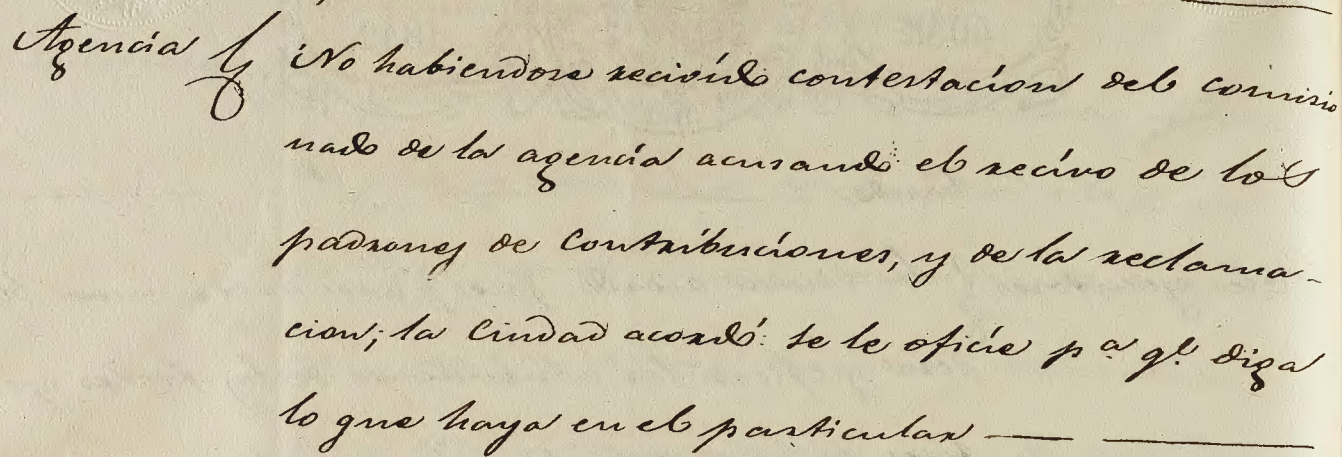 Agencia No habiendose recivido contestacion del comisio
nado de la agencia acusando el recivo de los
padrones de Contribuciones, y de la reclama-
cion; la Ciudad acordó: se le oficie pª qe diga
lo que haya en el particular —— ——